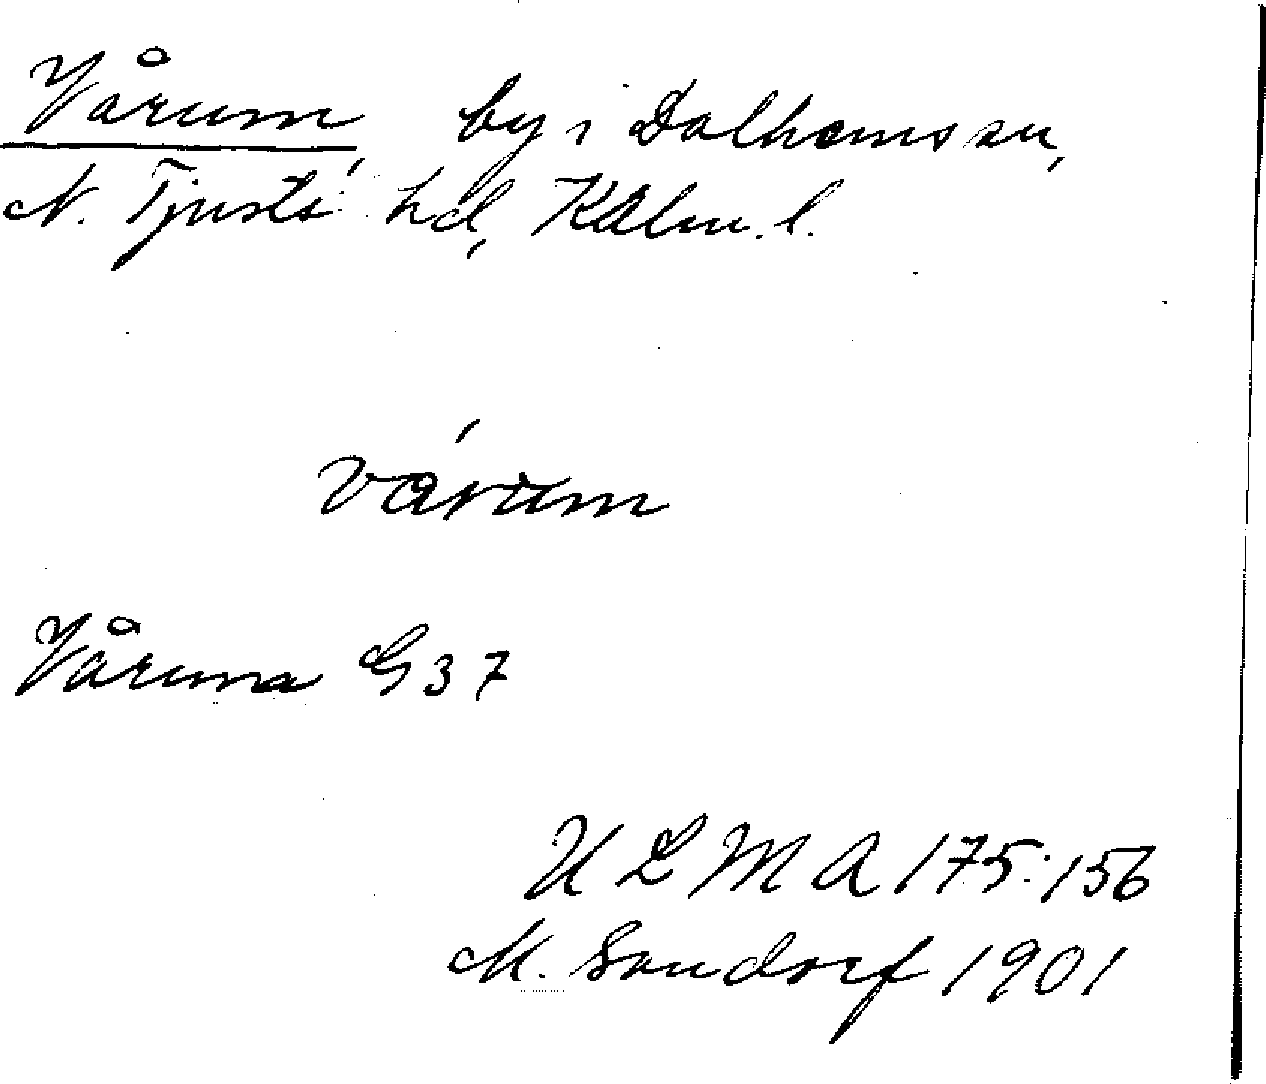 Vårum, by i Dalhems sn,
N. Tjusts hd, Kalm. l.
várum
Våruma G37
ULMA 175:156
M. Sandorf 1901